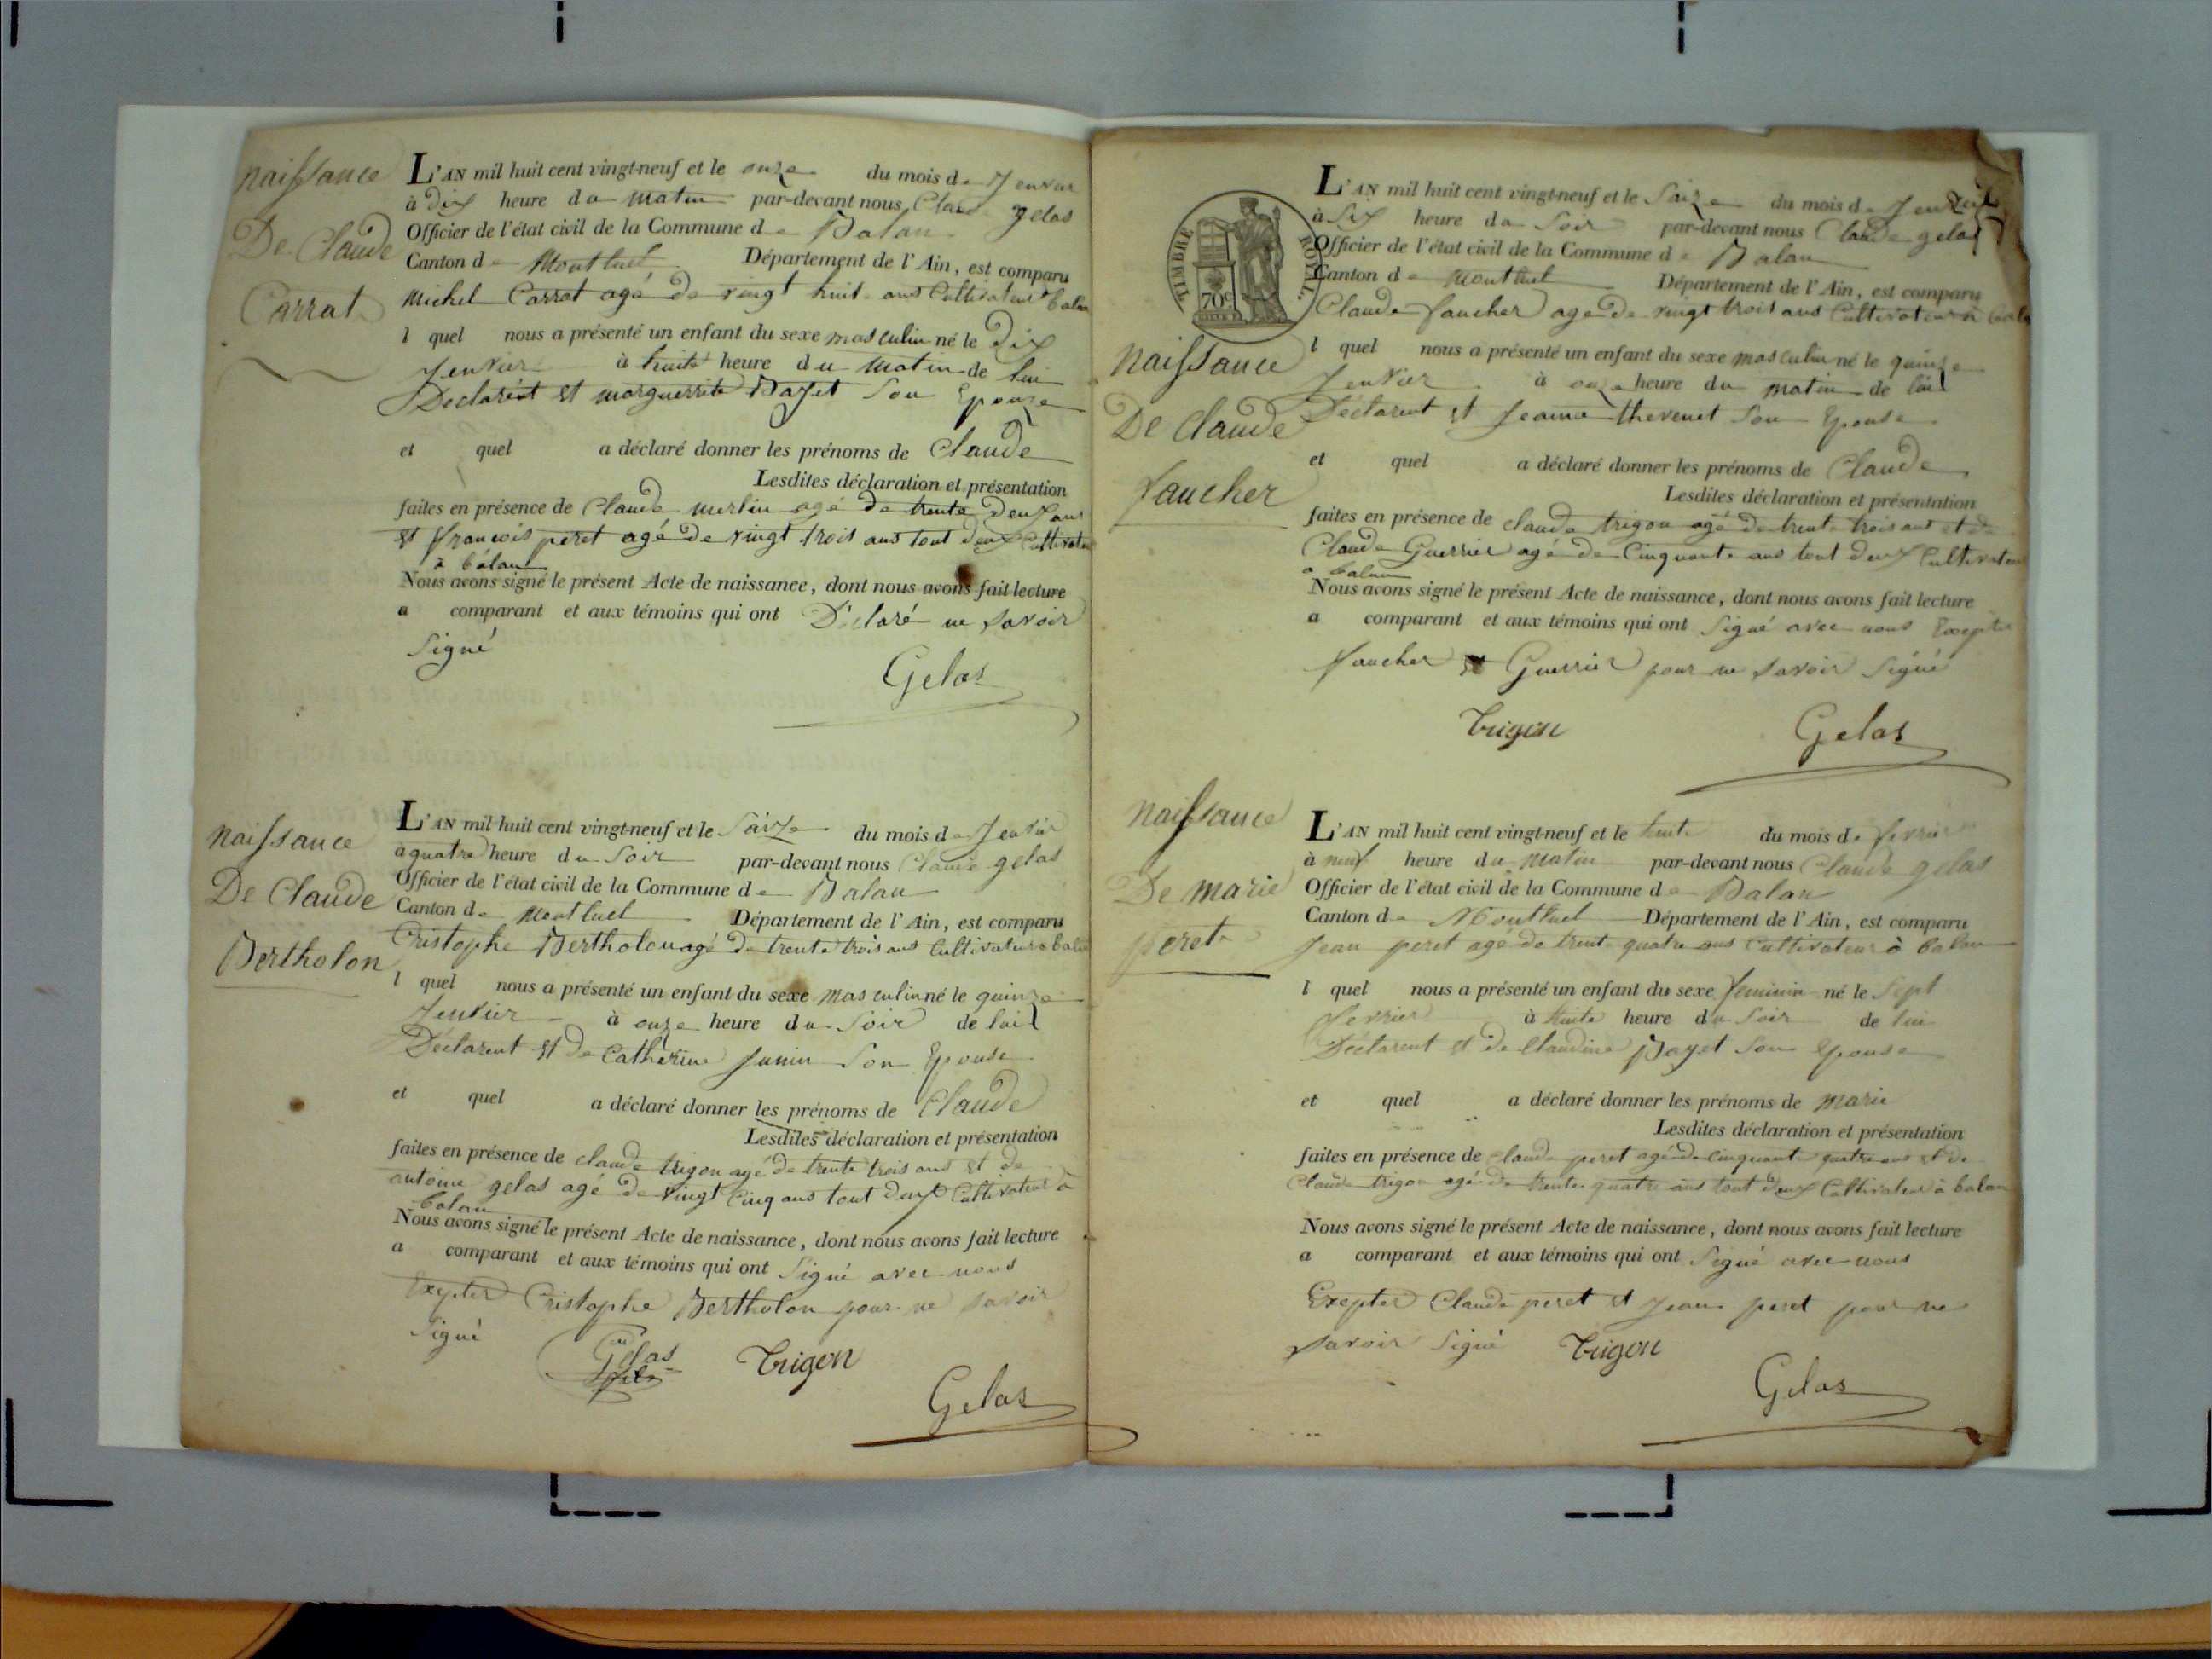 naissance
De Claude
Carrat
L'AN mil huit cent vingt-neuf et le onze du mois de Jenvier
à dix heure du matin par-devant nous Claude gelas
Officier de l'état civil de la Commune de Balan
Canton de Montluel Département de l'Ain, est comparu
Michel Carrat agé de vingt huit ans Cultivateur balan
l quel nous a présenté un enfant du sexe masculin né le Dix
Jenvier à huits heure du matin de lui
Declarent et marguerrite Payet Son Epouze
et quel a déclaré donner les prénoms de Claude
Lesdites déclaration et présentation
faites en présence de Claude merlin agé de trente deux ans
et françois peret agé de vingt trois ans tout deux Cultivateur
à balan
Nous avons signé le présent Acte de naissance, dont nous avons fait lecture
a comparant et aux témoins qui ont Déclaré ne savoir
Signé
Gelas
naissance
De Claude
Bertholon
L'AN mil huit cent vingt-neuf et le Saize du mois de Jenvier
à quatre heure du Soir par-devant nous Claude gelas
Officier de l'état civil de la Commune de Balan
Canton de Montluel Département de l'Ain, est comparu
Cristophe Bertholon agé de trente trois ans Cultivateur a balan
l quel nous a présenté un enfant du sexe masculin né le quinze
Jenvier à onze heure du Soir de lui
Déclarent et de Catherine Junin Son Epouse
et quel a déclaré donner les prénoms de Claude
Lesdites déclaration et présentation
faites en présence de claude trigon agé de trente trois ans et de
antoine gelas agé de vingt Cinq ans tout deux Cultivateur à
balan
Nous avons signé le présent Acte de naissance, dont nous avons fait lecture
a comparant et aux témoins qui ont Signé avec nous
Exepter Cristophe Bertholon pour ne savoir
Signé
Gelas
Trigon
Gelas
TIMBRE ROYAL
70c
naissance
De Claude
faucher
L'AN mil huit cent vingt-neuf et le Saize du mois de Jenvier
à Six heure du Soir par-devant nous Claude gelas
Officier de l'état civil de la Commune de Balan
Canton de Montluel Département de l'Ain, est comparu
Claude faucher agé de vingt trois ans Cultivateur à balan
l quel nous a présenté un enfant du sexe masculin né le quinze
Jenvier à onze heure du matin de lui
Déclarent et Jeanne thevenet Son Epouse
et quel a déclaré donner les prénoms de Claude
Lesdites déclaration et présentation
faites en présence de claude trigon agé de trente trois ans et de
Claude Guerrier agé de Cinquante ans tout deux Cultivateur
a balan
Nous avons signé le présent Acte de naissance, dont nous avons fait lecture
a comparant et aux témoins qui ont Signé avec nous Excepté
faucher et Guerrier pour ne savoir Signé
Trigon
Gelas
naissance
De marie
peret
L'AN mil huit cent vingt-neuf et le huite du mois de fevrier
à neuf heure du matin par-devant nous Claude gelas
Officier de l'état civil de la Commune de Balan
Canton de Montluel Département de l'Ain, est comparu
Jean peret agé de trente quatre ans Cultivateur à balan
l quel nous a présenté un enfant du sexe feminin né le Sept
fevrier à huite heure du Soir de lui
Déclarent et de Claudine Payet Son Epouse
et quel a déclaré donner les prénoms de marie
Lesdites déclaration et présentation
faites en présence de Claude peret agé de Cinquante quatre ans et de
Claude trigon agé de trente quatre ans tout deux Cultivateur à balan
Nous avons signé le présent Acte de naissance, dont nous avons fait lecture
a comparant et aux témoins qui ont Signé avec nous
Exepter Claude peret et Jean peret pour ne
savoir Signé
Trigon
Gelas